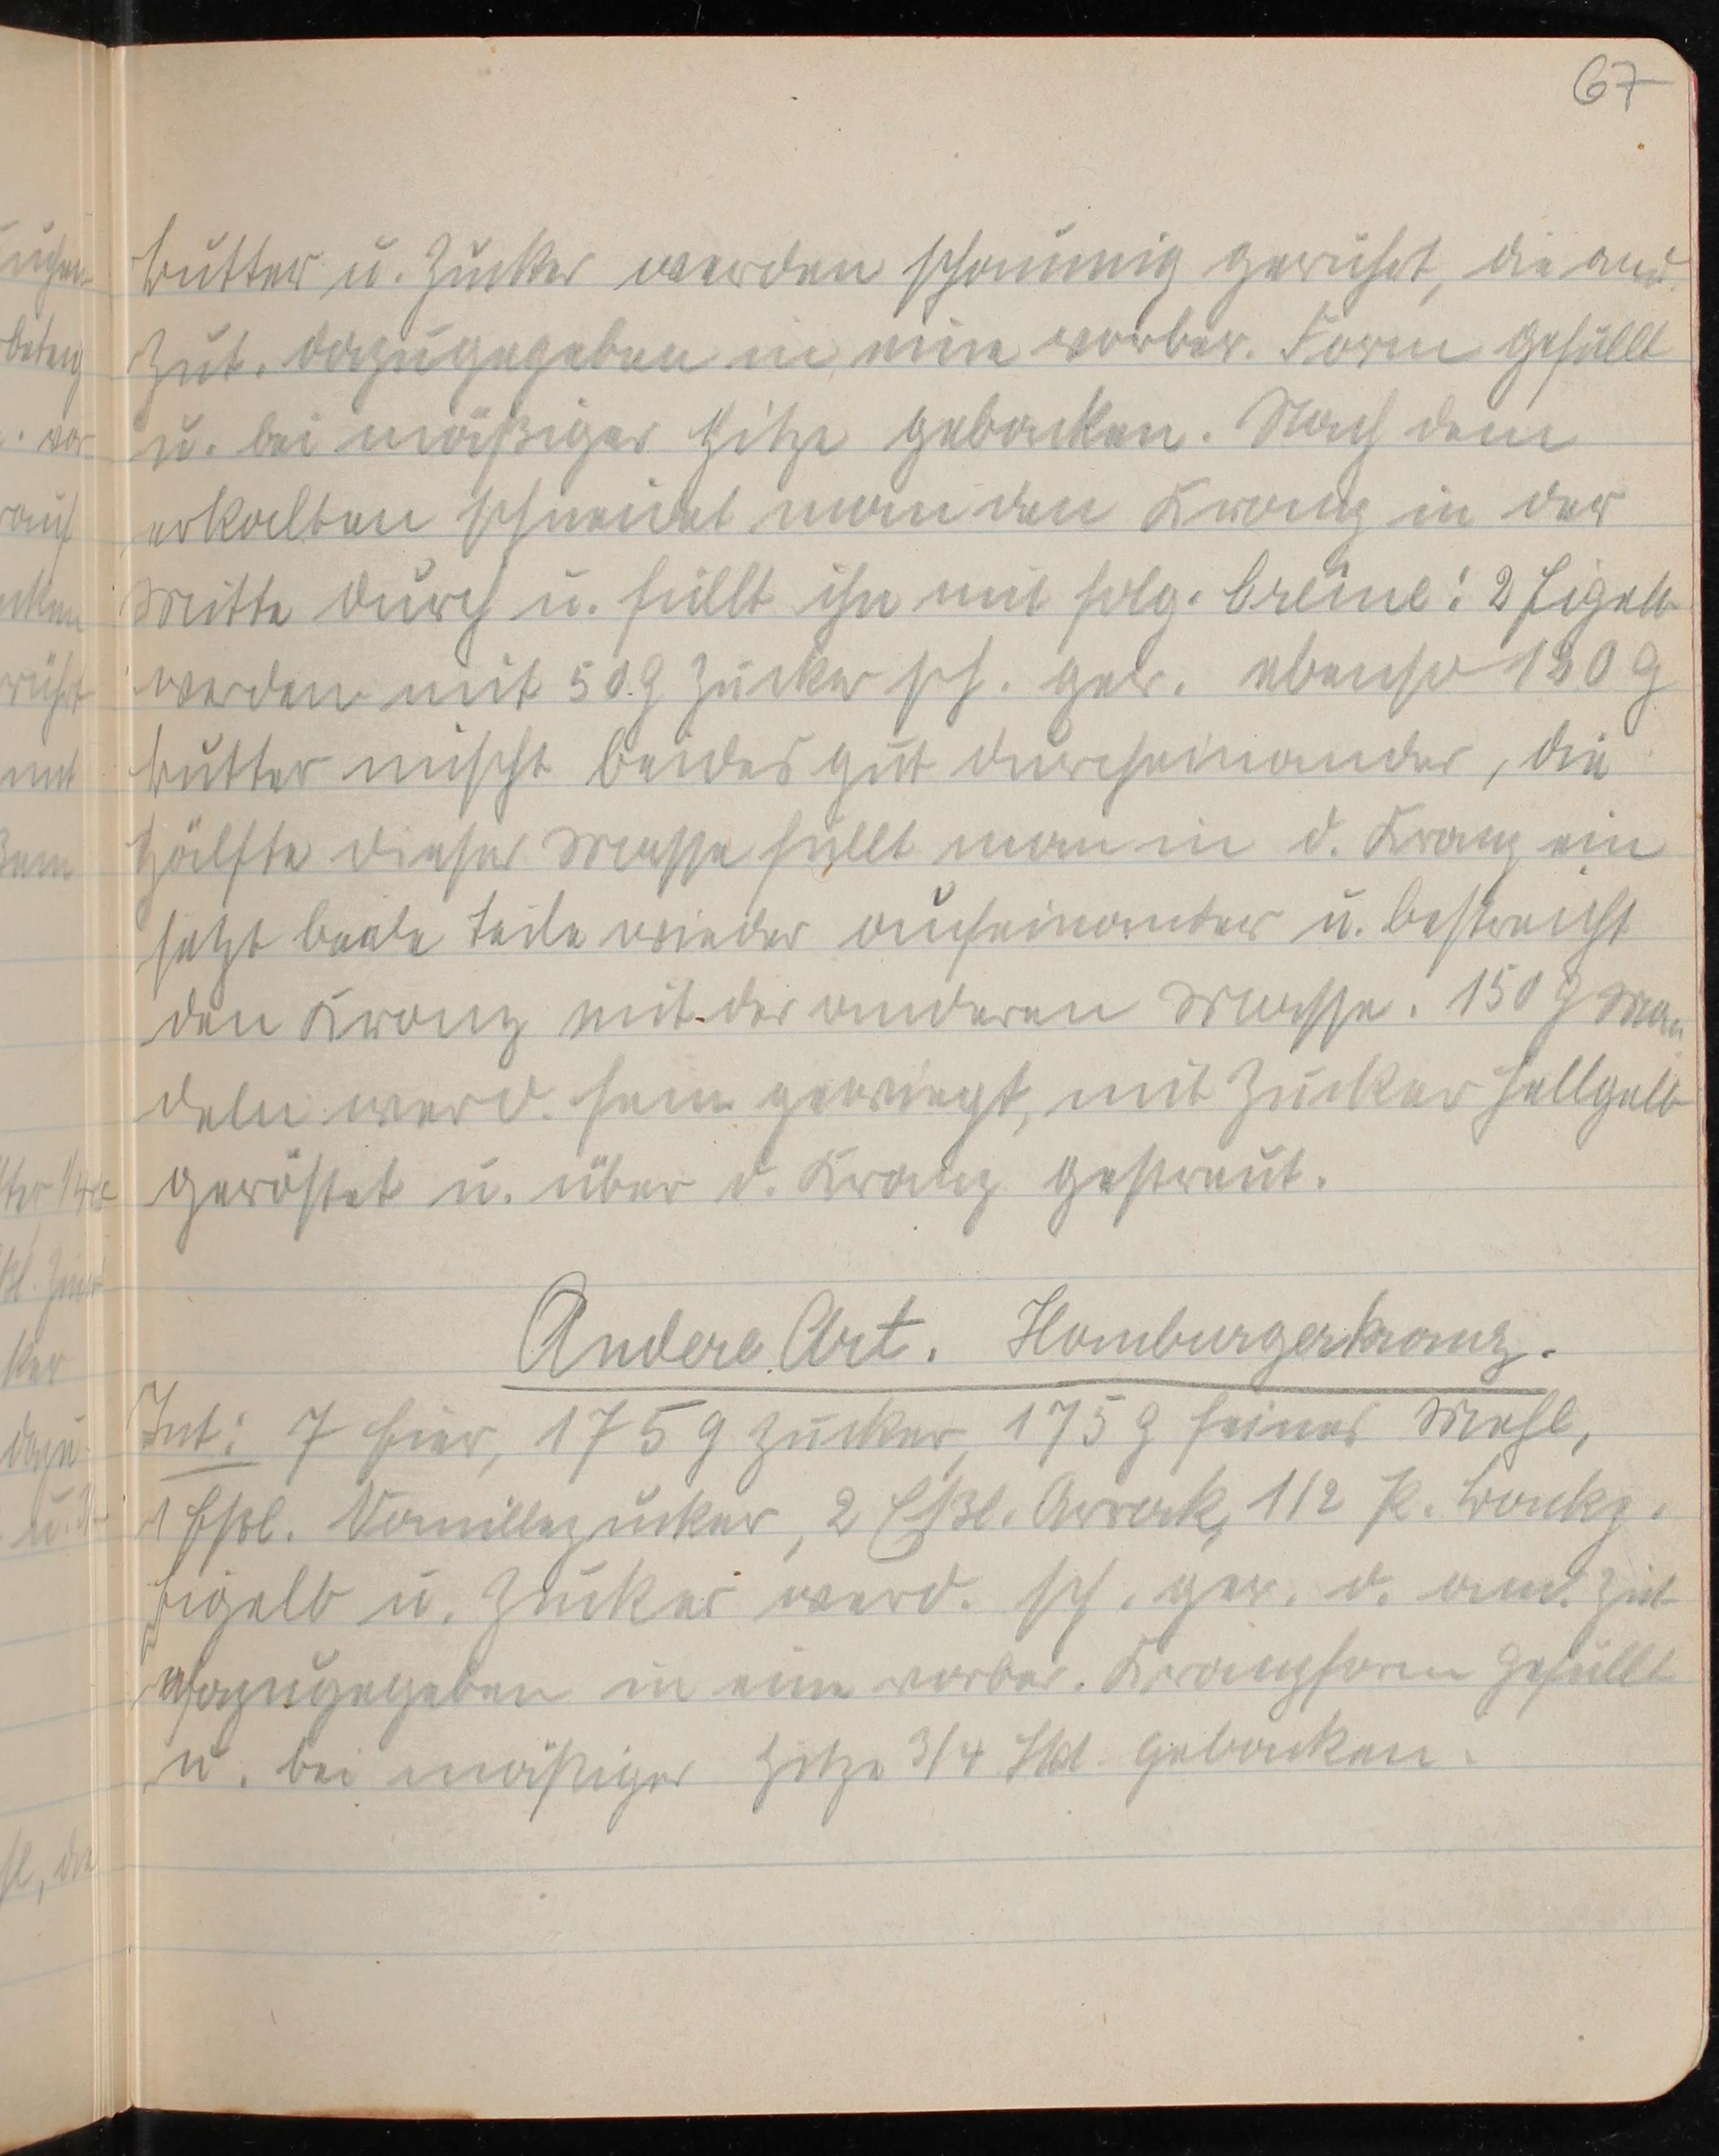 67
Butter u. Zucker werden schaumig gerührt, die and.
Zut. dazugegeben in eine vorber. Form gefüllt
u. bei mäßiger Hitze gebacken. Nach dem
erkalten schneidet man den Kranz in der
Mitte durch u. füllt ihn mit folg. Creme: 2 Eigelb
werden mit 50 g Zucker sch. ger. ebenso 180 g
Butter mischt beides gut durcheinander, die
Hälfte dieser Masse füllt man in d. Kranz ein
setzt beide Teile wieder aufeinander u. bestreicht
den Kranz mit der anderen Masse. 150 g Man
deln werd. fein gewiegt, mit Zucker hellgelb
geröstet u. über d. Kranz gestreut.
Andere Art. Homburgerkranz.
Zut: 7 Eier, 175 g Zucker, 175 g feines Mehl,
1 Eßl. Vanillezucker, 2 Eßl. Arrak, 1/2 P. Backp.
Eigelb u. Zucker werd. sch. ger. d. and. Zut
dazugegeben in eine vorber. Kranzform gefüllt
u. bei mäßiger Hitze 3/4 Std. gebacken.